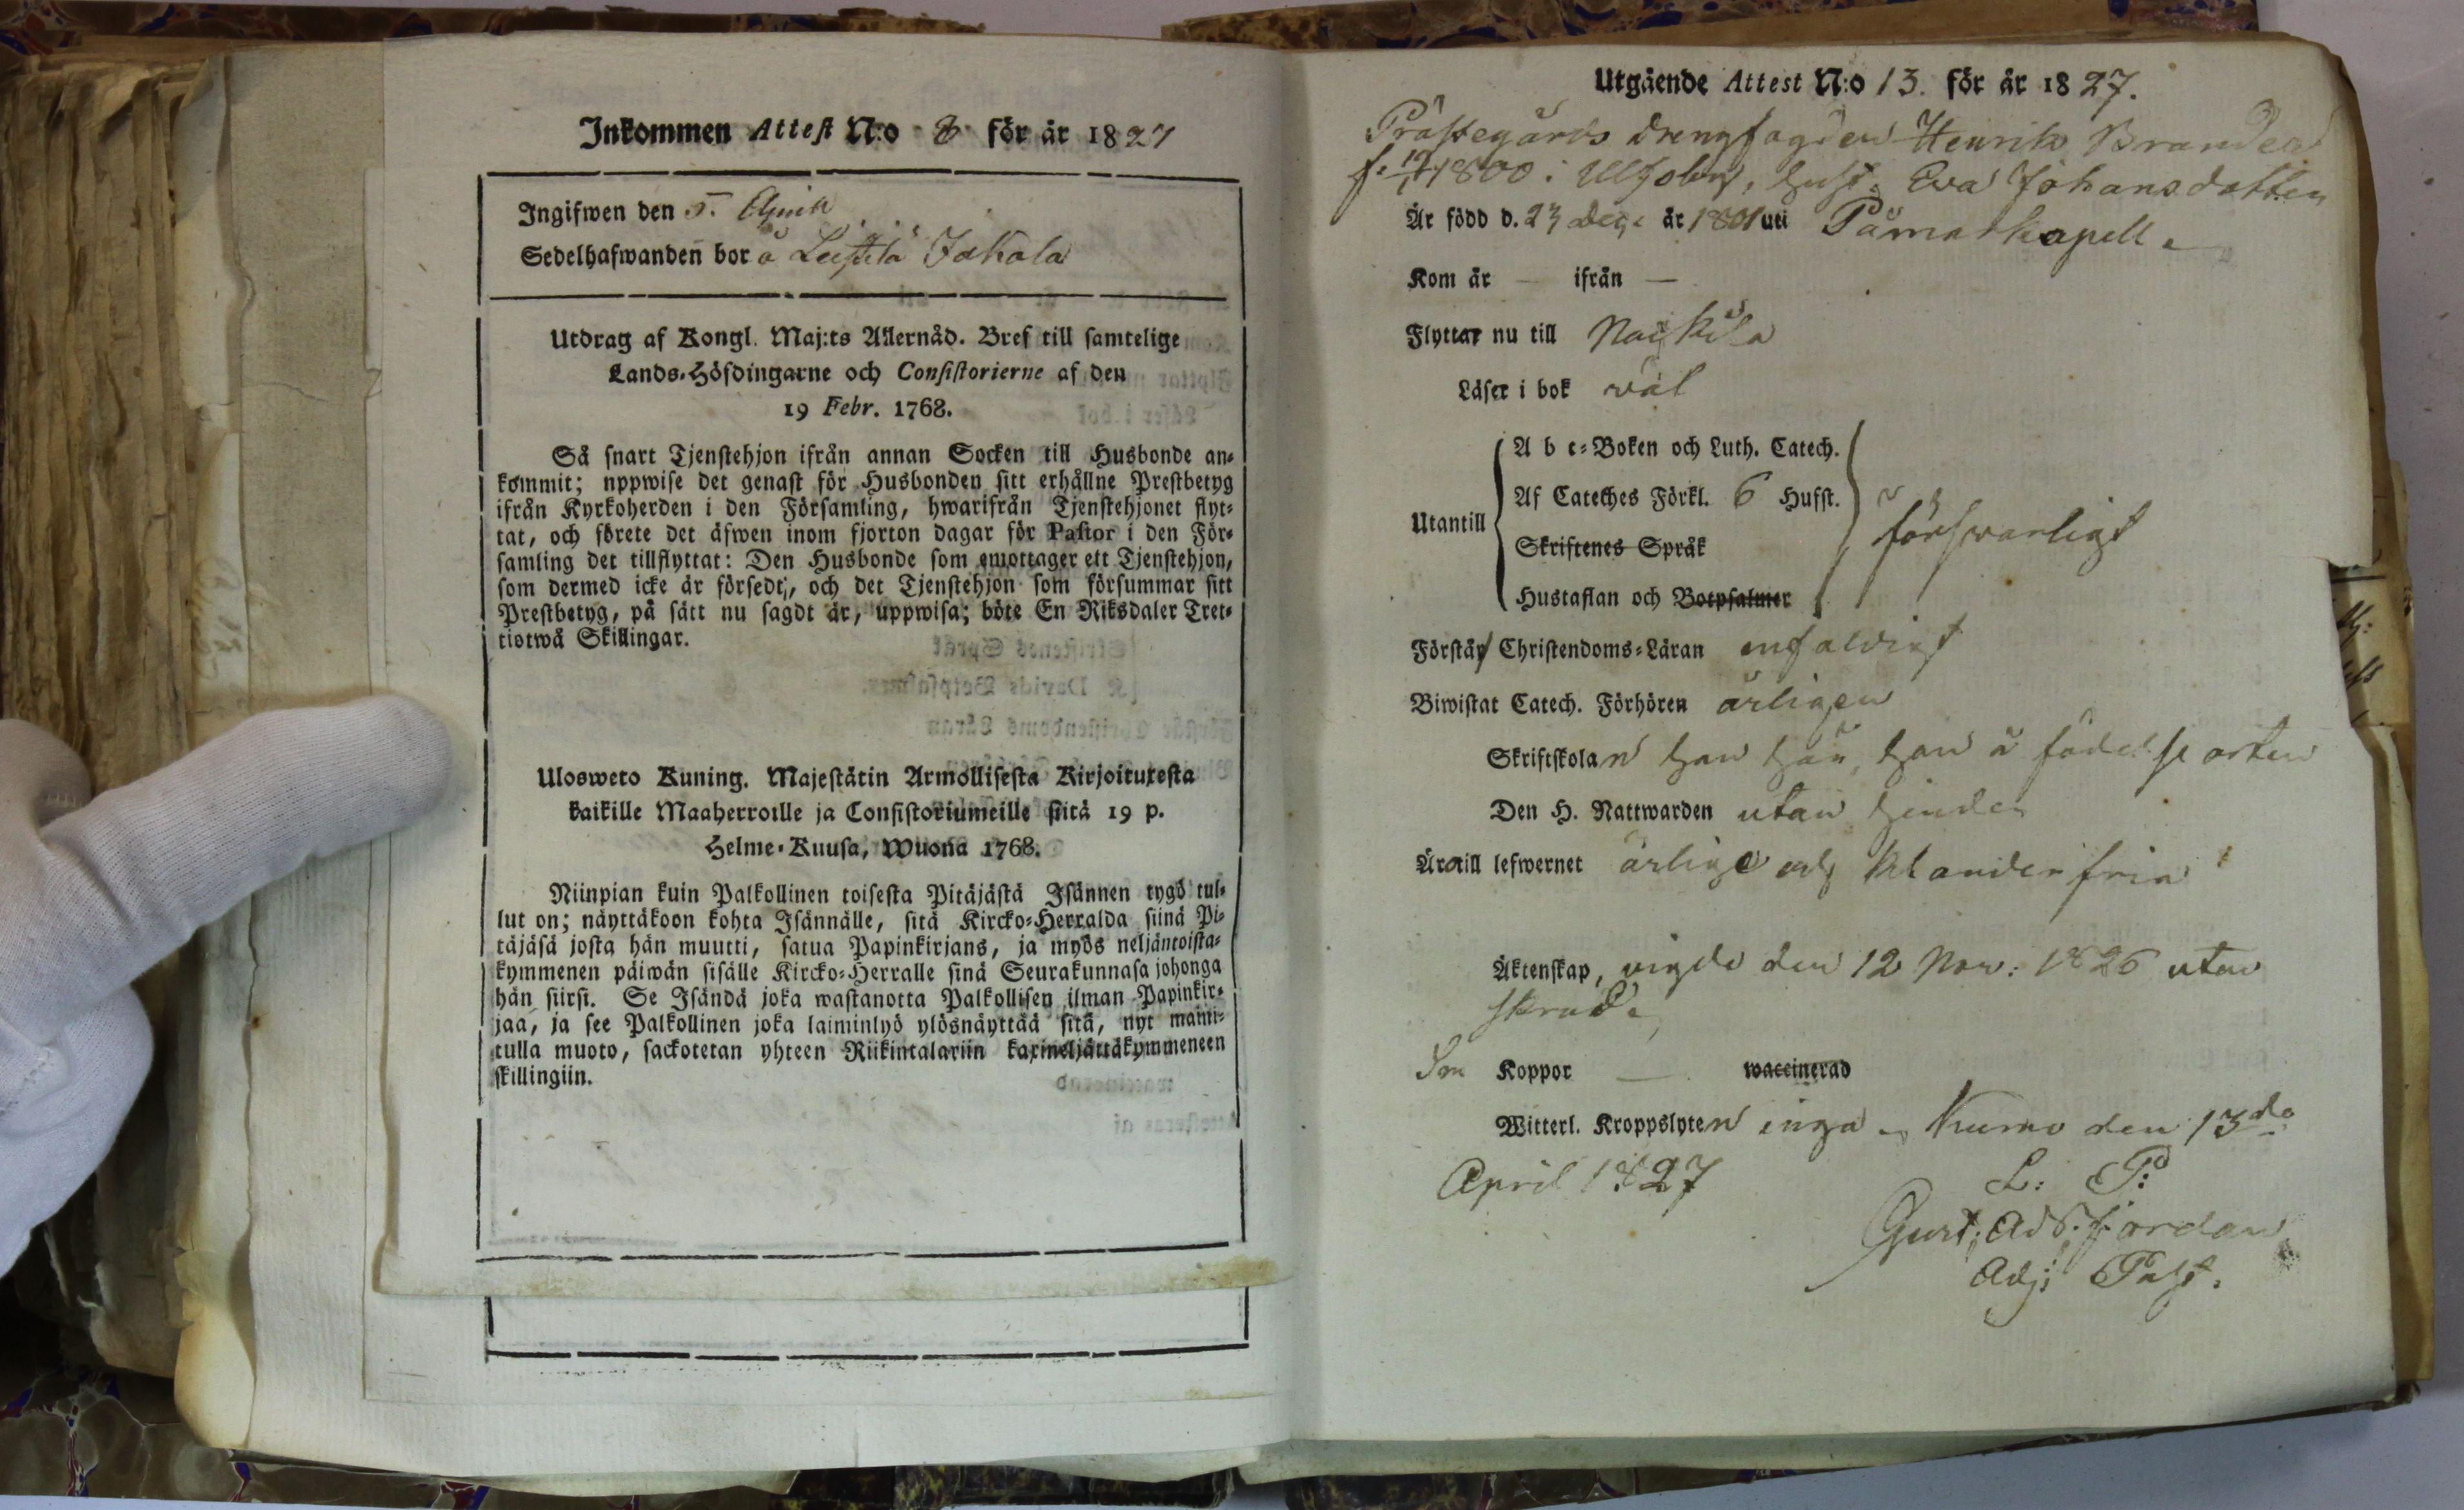 Inkommen Attest N:o 8 för år 1827
Ingifwen den 5. April
Sedelhafwanden bor å Leistilä Jakala
Utdrag af Kongl. Maj:ts Allernåd. Bref till samtelige
Lands-Höfdingarne och Consistorierne af den
19 Febr. 1768.
Så snart Tjenstehjon ifrån annan Socken till Husbonde an-
kommit; nppwise det genast för Husbonden sitt erhållne Prestbetyg
ifrån Kyrkoherden i den Församling, hwarifrån Tjenstehjonet flyt-
tat, och förete det äfwen inom fjorton dagar för Pastor i den För-
samling det tillflyttat: Den Husbonde som emottager ett Tjenstehjon,
som dermed icke är försedt, och det Tjenstehjon som försummar sitt
Prestbetyg, på sätt nu sagdt är, uppwisa; böte En Riksdaler Tret-
tiotwå Skillingar.
Ulosweto Kuning. Majestätin Armollisesta Kirjoituxesta
kaikille Maaherroille ja Consistoriumeille siitä 19 p.
Helme-Kuusa, Wuona 1768.
Niinpian kuin Palkollinen toisesta Pitäjästä Isännen tygö tul-
lut on; näyttäkoon kohta Isännälle, sitä Kircko-Herralda siinä Pi-
täjäsä josta hän muutti, satua Papinkirjans, ja myös neljäntoista-
kymmenen päiwän sisälle Kircko-Herralle sinä Seurakunnasa johonga
hän siirsi. Se Isändä joka wastanotta Palkollisen ilman Papinkir-
jaa, ja see Palkollinen joka laiminlyö ylösnäyttää sitä, nyt maini-
tulla muoto, sackotetan yhteen Riikintalariin kaxineljättäkymmeneen
skillingiin.
Utgående Attest N:o 13. för år 1827.
Prästegårds drengfogden Henrik Brander
f: 1800 i Ulfsby, hust. Eva Johansdotter
Är född d. 23 Dec. år 1801 uti Påmark kapell
Kom år — ifrån —
Flyttar nu till Nackila
Läser i bok wäl
A b c-Boken och Luth. Catech.
Af Cateches Förkl. 6 Hufst.
Utantill
försvarligt
Skriftenes Språk
Hustaflan och Botpsalmer
Förstå Christendoms-Läran enfaldigt
Biwistat Catech. Förhören årligen
Skriftskolan han här, hon å födelse orten
Den H. Nattwarden utan hinder
Äro till lefwernet ärlige och klanderfria
Äktenskap, vigde den 12 Nov: 1826 utan
skrud.
Koppor — waccinerad
Witterl. Kroppslyten inga. Kumo den 13de
April 1827
L: P:
Gust: Ad: Fjordan
Adj: Past.